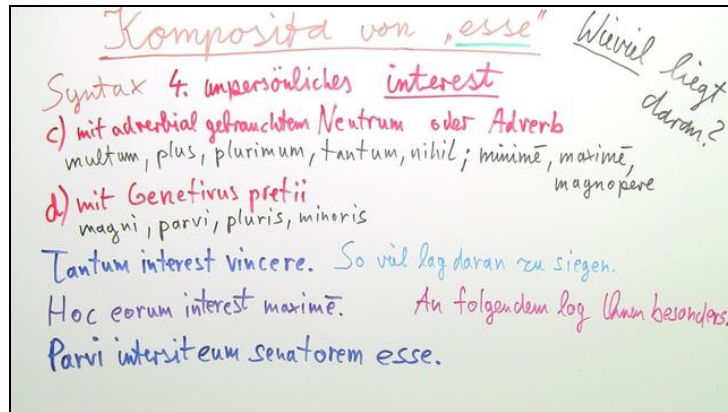 Komposita von „esse"
Wieviel liegt
daran?
Syntax 4. unpersönliches interest
c) mit adverbial gebrauchtem Neutrum oder Adverb
multum, plus, plurimum, tantum, nihil; minimē, maximē,
magnopere
d) mit Genetivus pretii
magni, parvi, pluris, minoris
Tantum interest vincere. So viel lag daran zu siegen.
Hoc eorum interest maximē. An folgendem lag ihnen besonders.
Parvi intersit eum senatorem esse.